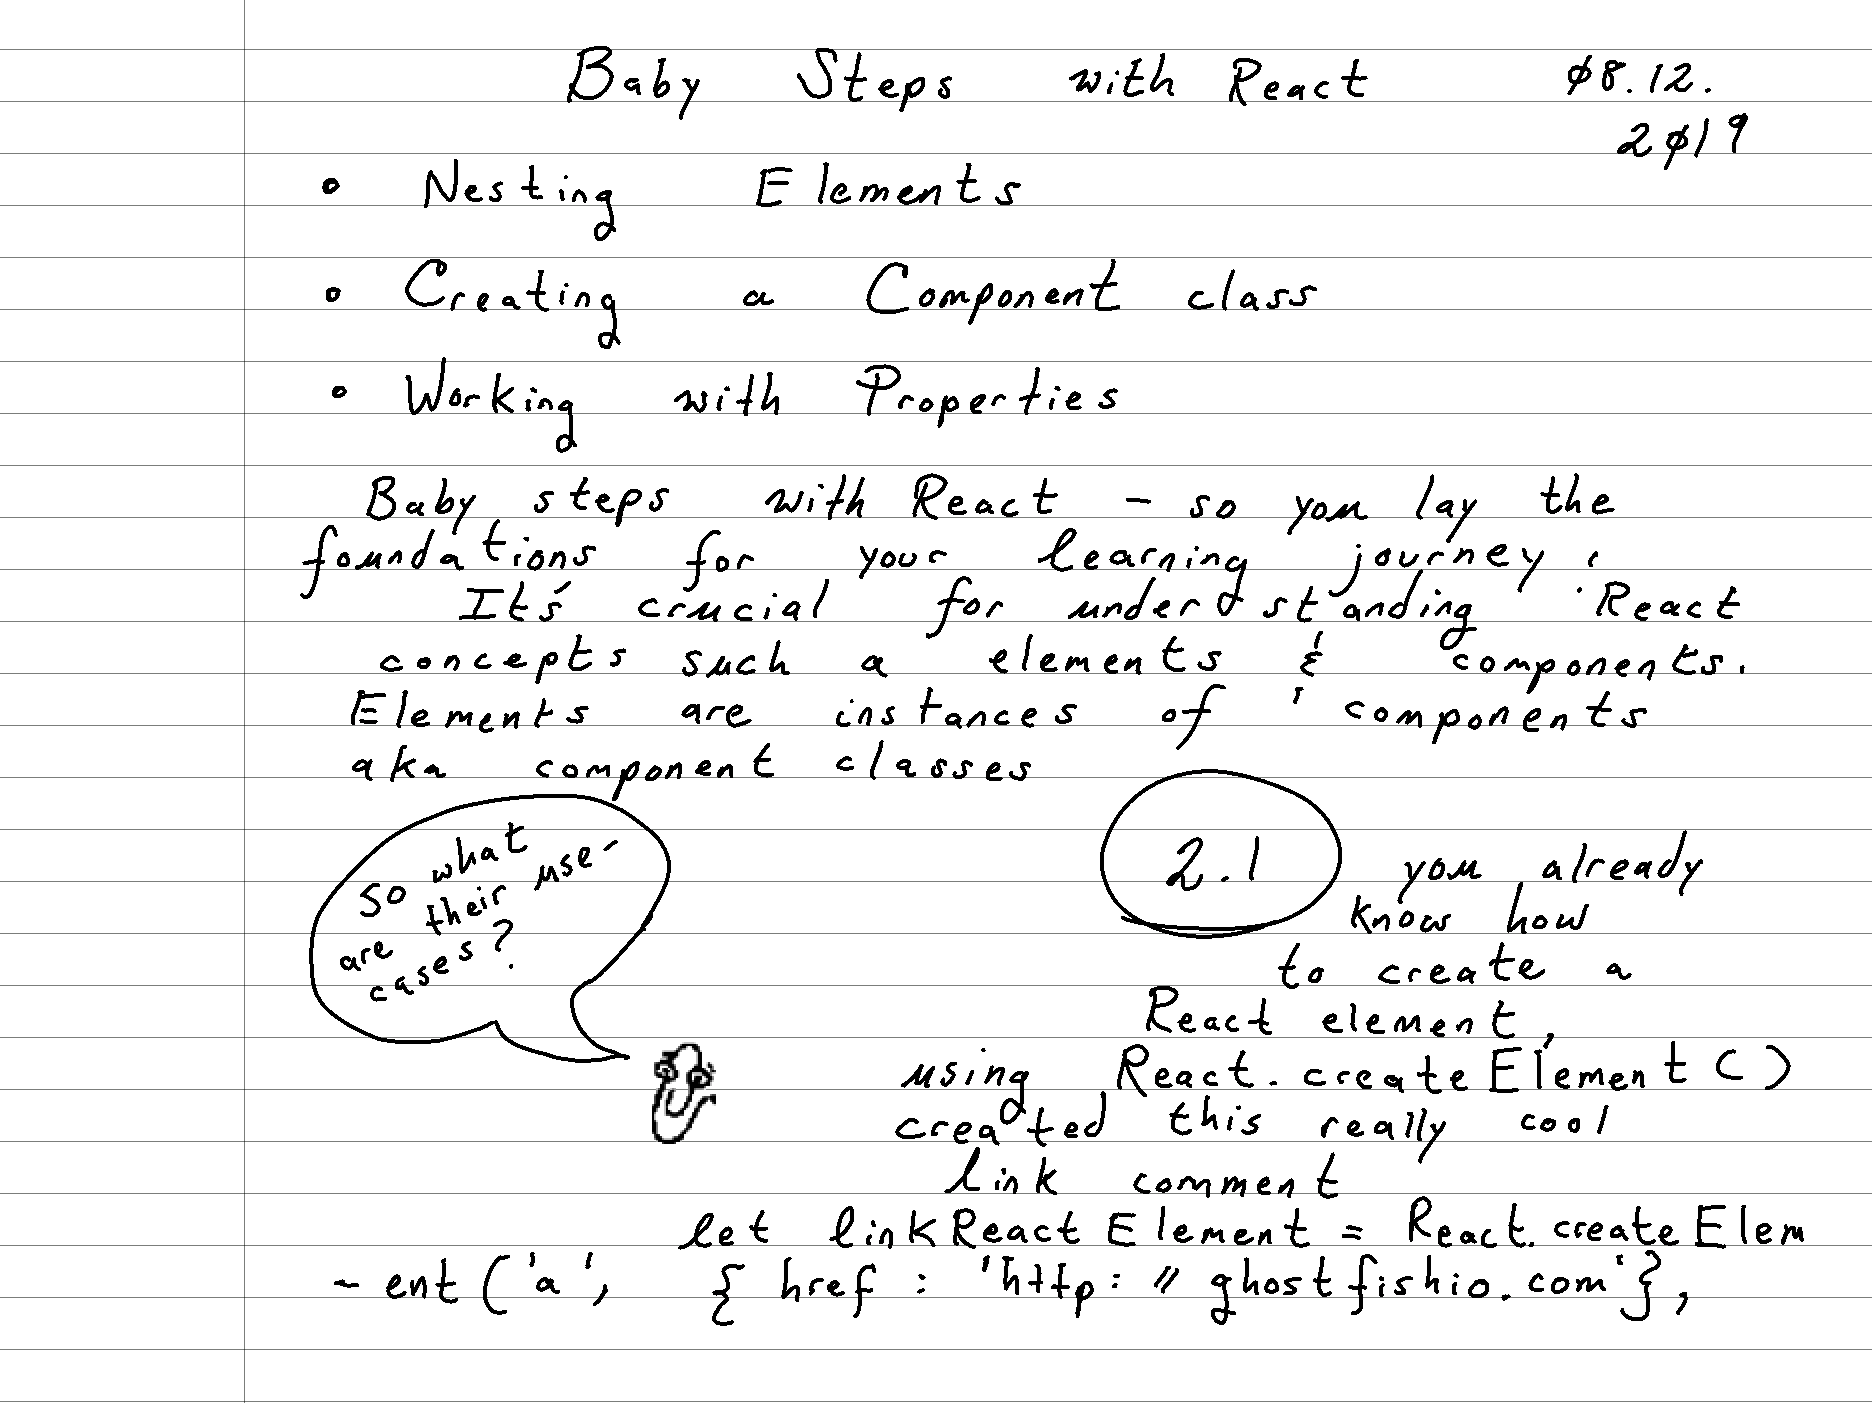 Baby Steps with React ø8.12.
2ø19
• Nesting Elements
• Creating a Component class
• Working with Properties
Baby steps with React - so you lay the
foundations for your learning journey.
It's crucial for understanding React
concepts such a elements & components.
Elements are instances of components
aka component classes
So what
are their use-
cases?
2.1 you already
know how
to create a
React element,
using React.createElement()
created this really cool
link comment
let linkReactElement = React.createElem
- ent('a', { href : 'http://ghostfishio.com'},